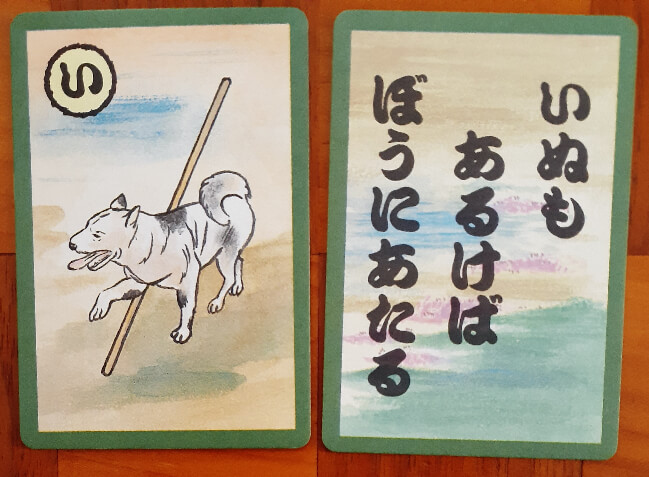 い
いぬも
あるけば
ぼうにあたる